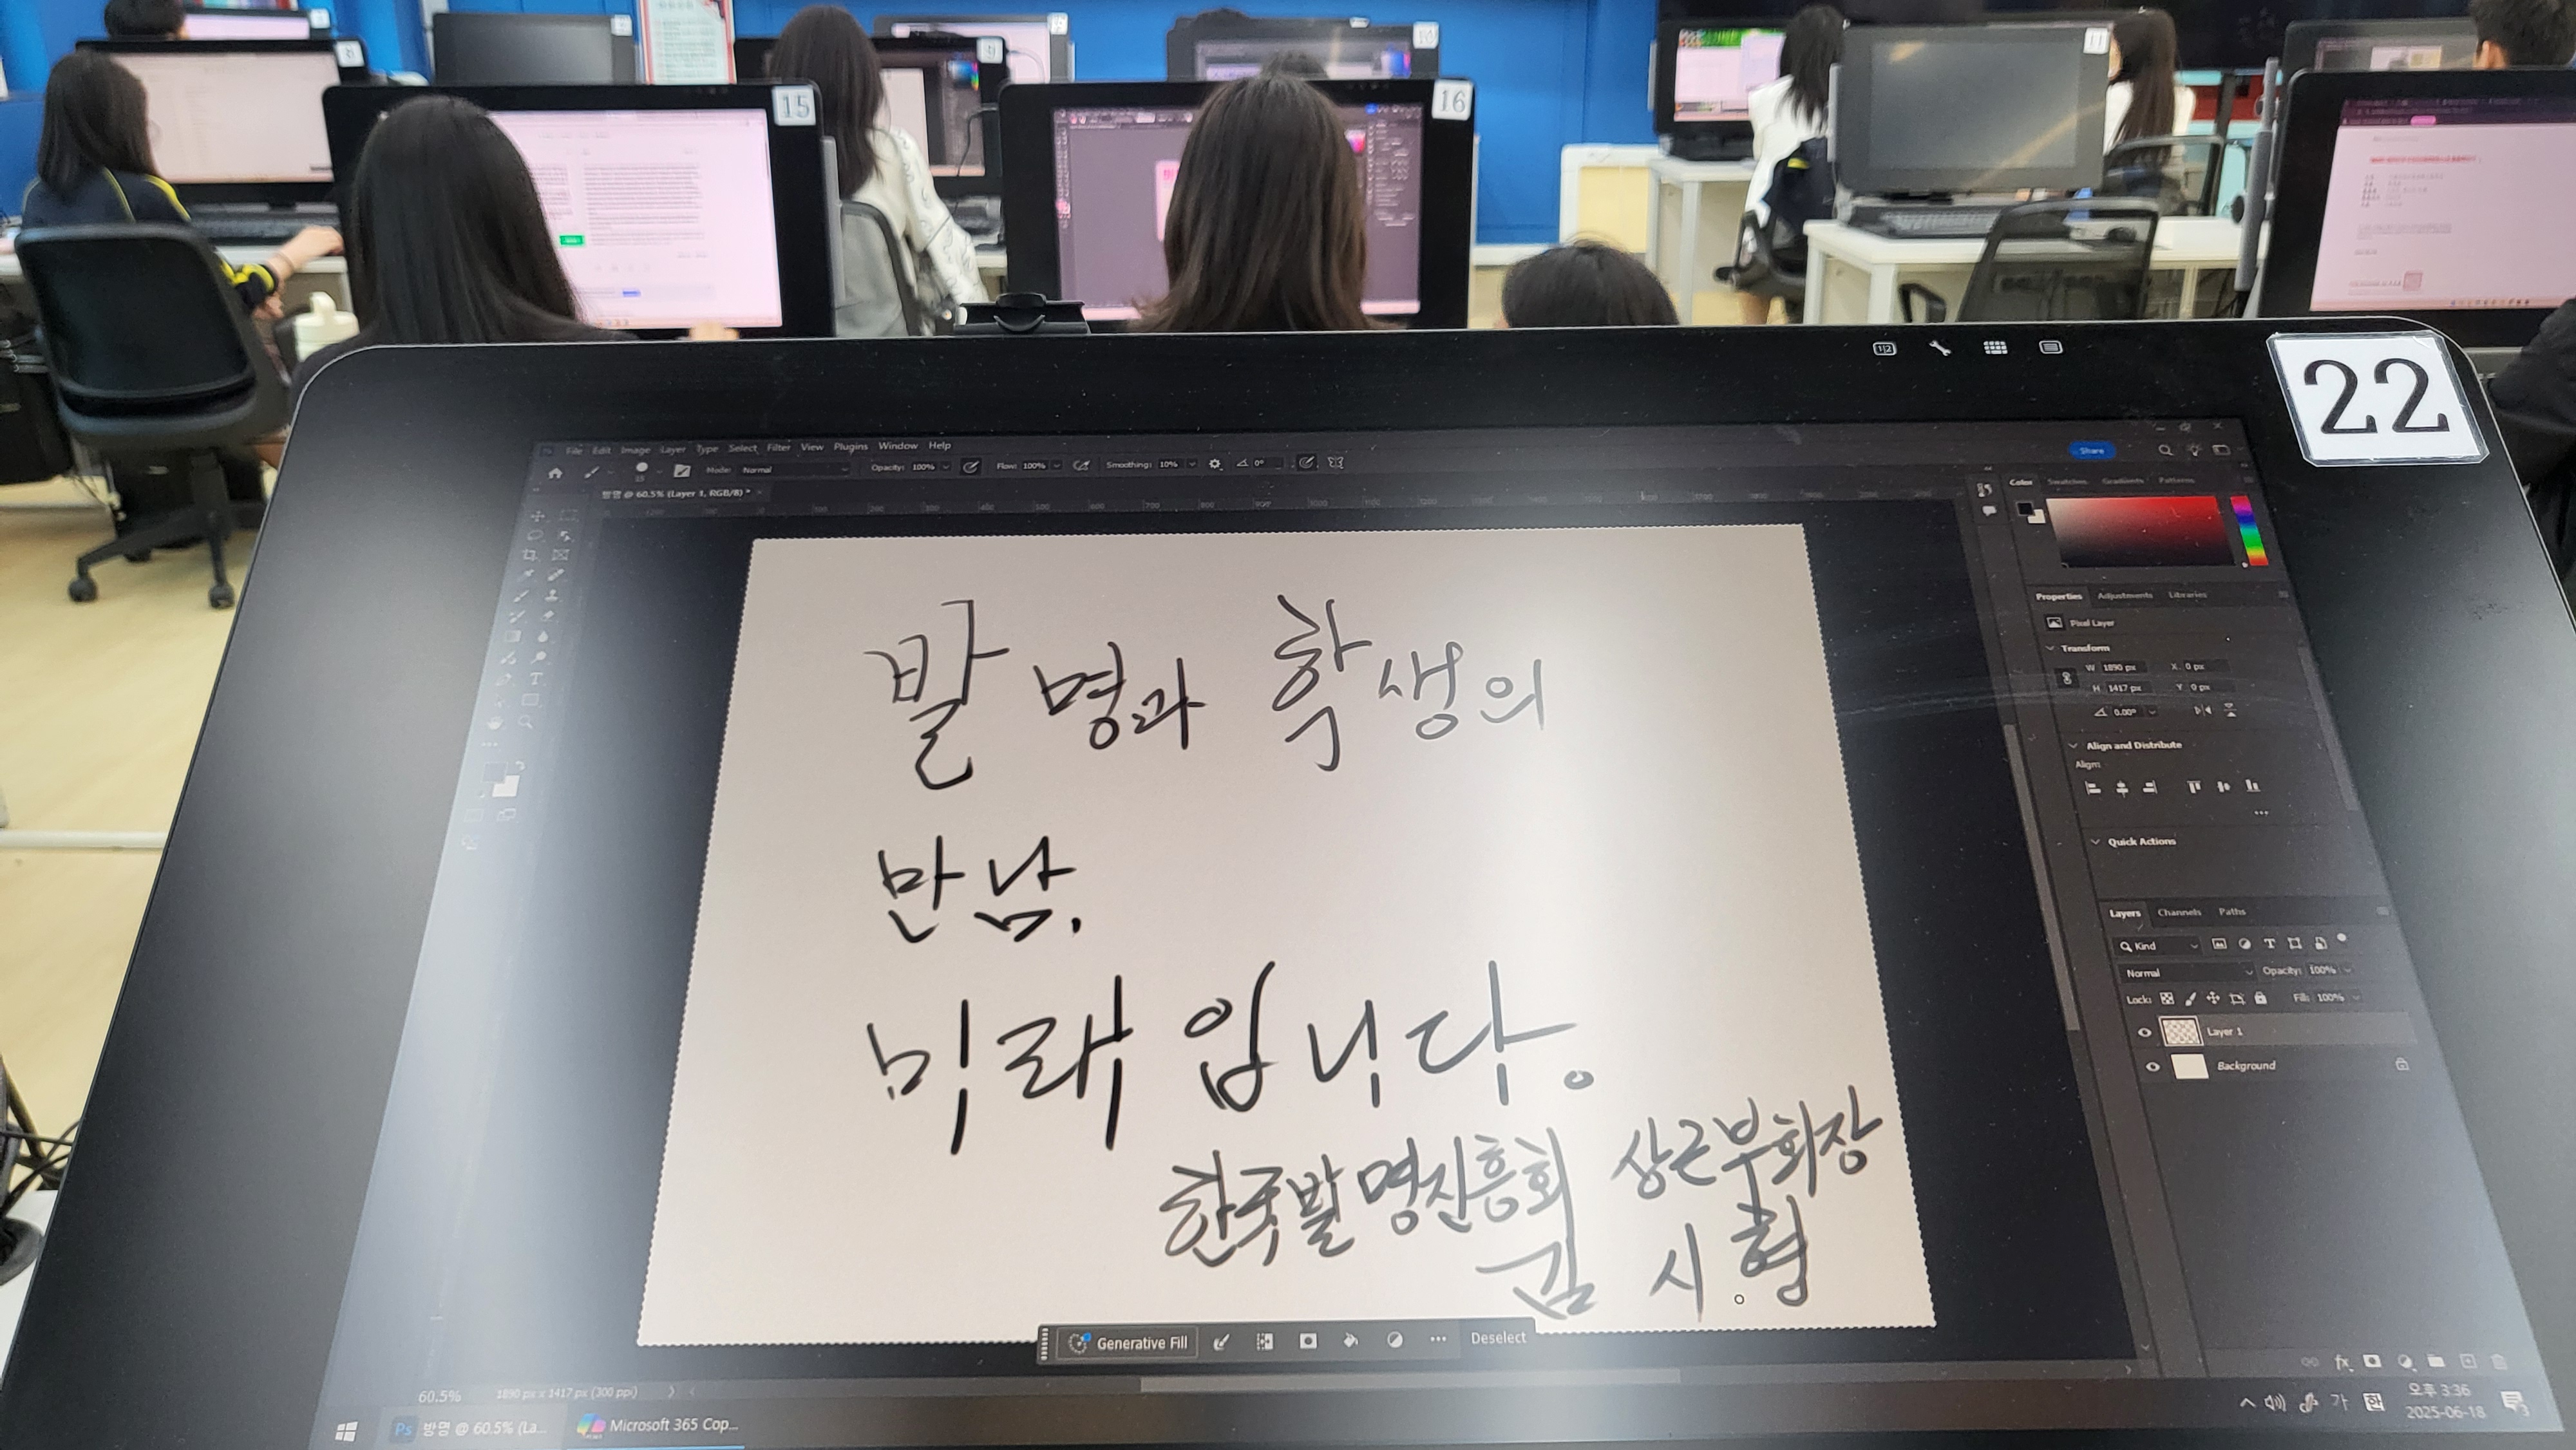 15
16
22
File Edit Image Layer Type Select Filter View Plugins Window Help
Share
Mode: Normal Opacity: 100% Flow: 100% Smoothing: 10% 0°
방명 @ 60.5% (Layer 1, RGB/8) *
Color Swatches Gradients Patterns
발명과 학생의
만남.
미래입니다.
한국발명진흥회 상근부회장
김시형
Properties Adjustments Libraries
Pixel Layer
Transform
W 1890 px X: 0 px
H 1417 px Y 0 px
0.00°
Align and Distribute
Align:
Quick Actions
Layers Channels Paths
Kind
Normal Opacity: 100%
Lock: Fill: 100%
Layer 1
Background
Generative Fill Deselect
60.5% 1890 px x 1417 px (300 ppi)
Ps 방명 @ 60.5% (La... Microsoft 365 Cop...
가 한 오후 3:36
2025-06-18